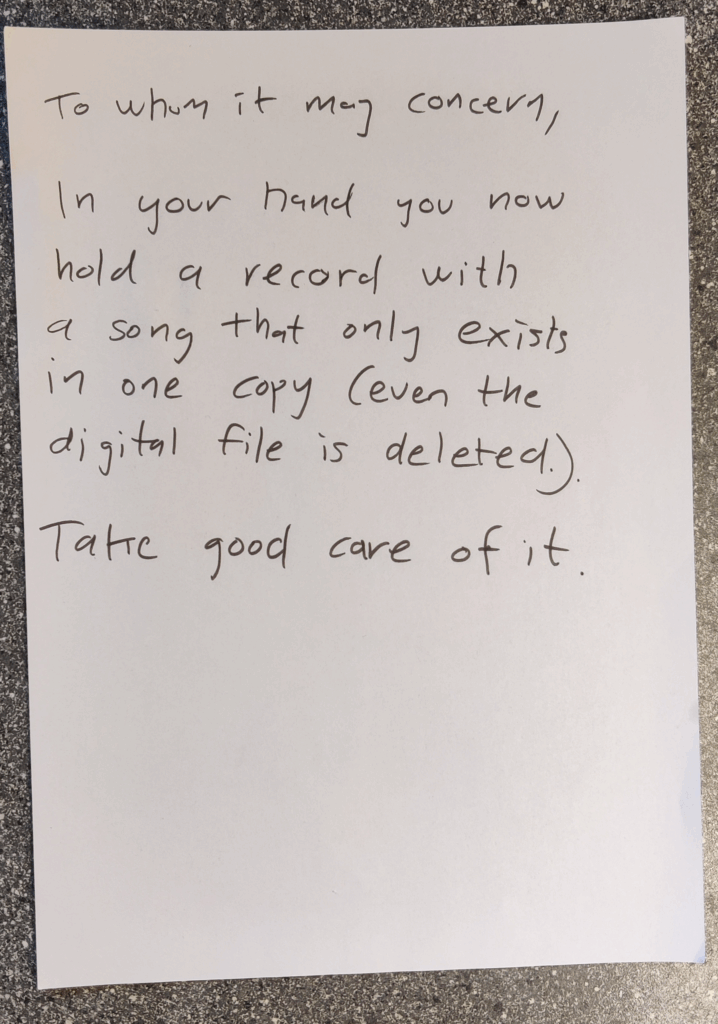 To whom it may concern,
In your hand you now
hold a record with
a song that only exists
in one copy (even the
digital file is deleted.).
Take good care of it.